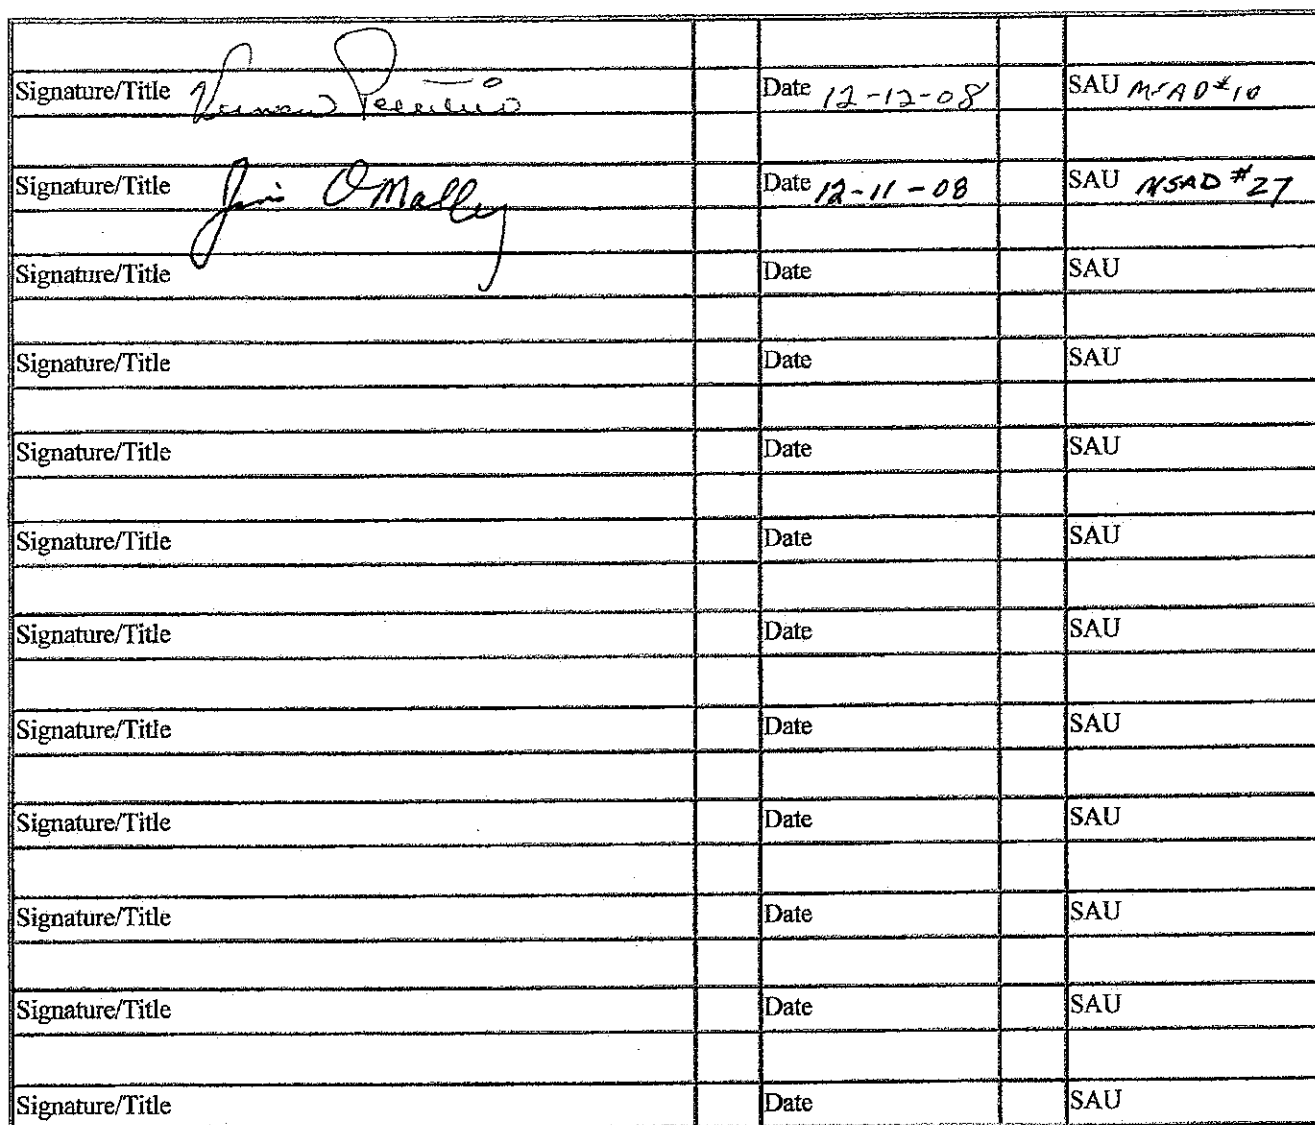 Signature/Title Date 12-12-08 SAU MSAD #10
Signature/Title Jim O'Malley Date 12-11-08 SAU MSAD #27
Signature/Title Date SAU
Signature/Title Date SAU
Signature/Title Date SAU
Signature/Title Date SAU
Signature/Title Date SAU
Signature/Title Date SAU
Signature/Title Date SAU
Signature/Title Date SAU
Signature/Title Date SAU
Signature/Title Date SAU